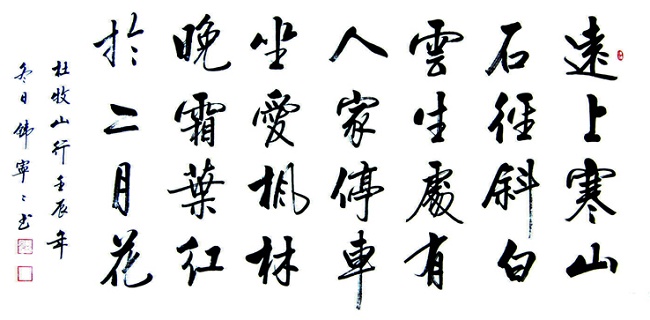 遠上寒山
石徑斜白
雲生處有
人家停車
坐愛楓林
晚霜葉紅
於二月花
杜牧山行壬辰年
冬日寧〻书